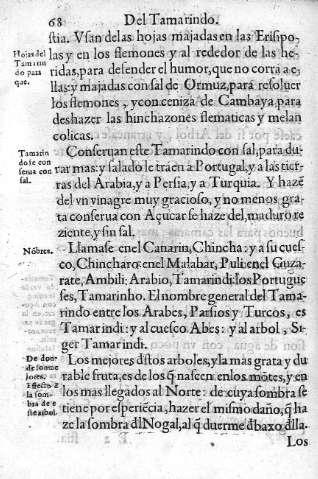 68
Del Tamarindo.
stia. Vsan delas hojas majadas en las Erisipo-
las y en los flemones y al rededor de las he-
ridas, para defender el humor, que no corra a e-
llas: y majadas con sal de Ormuz, para resoluer
los flemones, y con ceniza de Cambaya, para
deshazer las hinchazones flematicas y melan
colicas.
Hojas del
Tamarin
do para
que.
Conseruan este Tamarindo con sal, para du-
rar mas: y salado le traen a Portugal, y a las tier-
ras del Arabia, y a Persia, y a Turquia. Y hazẽ
del vn vinagre muy gracioso, y no menos gra-
ta conserua con Açucar se haze del, maduro re
ziente, y sin sal.
Tamarin
do se con
serua con
sal.
Llamase enel Canarin, Chincha: y a su cues-
co, Chincharo: enel Malabar, Puli: enel Guza-
rate, Ambili: Arabio, Tamarindi: los Portugue-
ses, Tamarinho. El nombre general del Tama-
rindo entre los Arabes, Parsios y Turcos, es
Tamarindi: y al cuesco Abes: y al arbol, Si-
ger Tamarindi.
Nõbres.
Los mejores dstos arboles, y la mas grata y du-
rable fruta, es de los q̃ nascen enlos mõtes, y en
los mas llegados al Norte: de cuya sombra se
tiene por esperiẽcia, hazer el mismo daño, q̃ ha
ze la sombra dl Nogal, al q̃ duerme dbaxo dlla.
De don-
de son me
jores.
Effecto d
la som-
bra de e
ste arbol.
Los